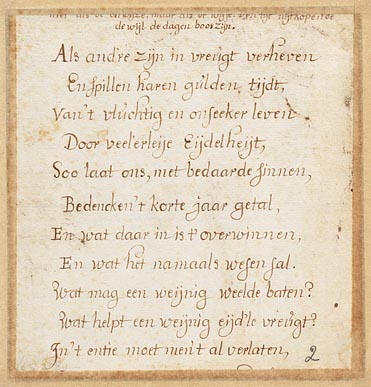 niet als de onwijze, maar als de wijze. Den tijt uijtkopende
de wijl de dagen boos zijn.
Als and're zijn in vreugt verheven
En spillen haren gulden tijdt,
Van't vluchtig en onseeker leven
Door veel'erleije Eijdelheijt,
Soo laat ons, met bedaarde sinnen,
Bedencken't korte jaar getal,
En wat daar in is t'overwinnen,
En wat het namaals wesen sal.
Wat mag een weijnig weelde baten?
Wat helpt een weijnig eijd'le vreugt?
In't entie moet men't al verlaten,
2